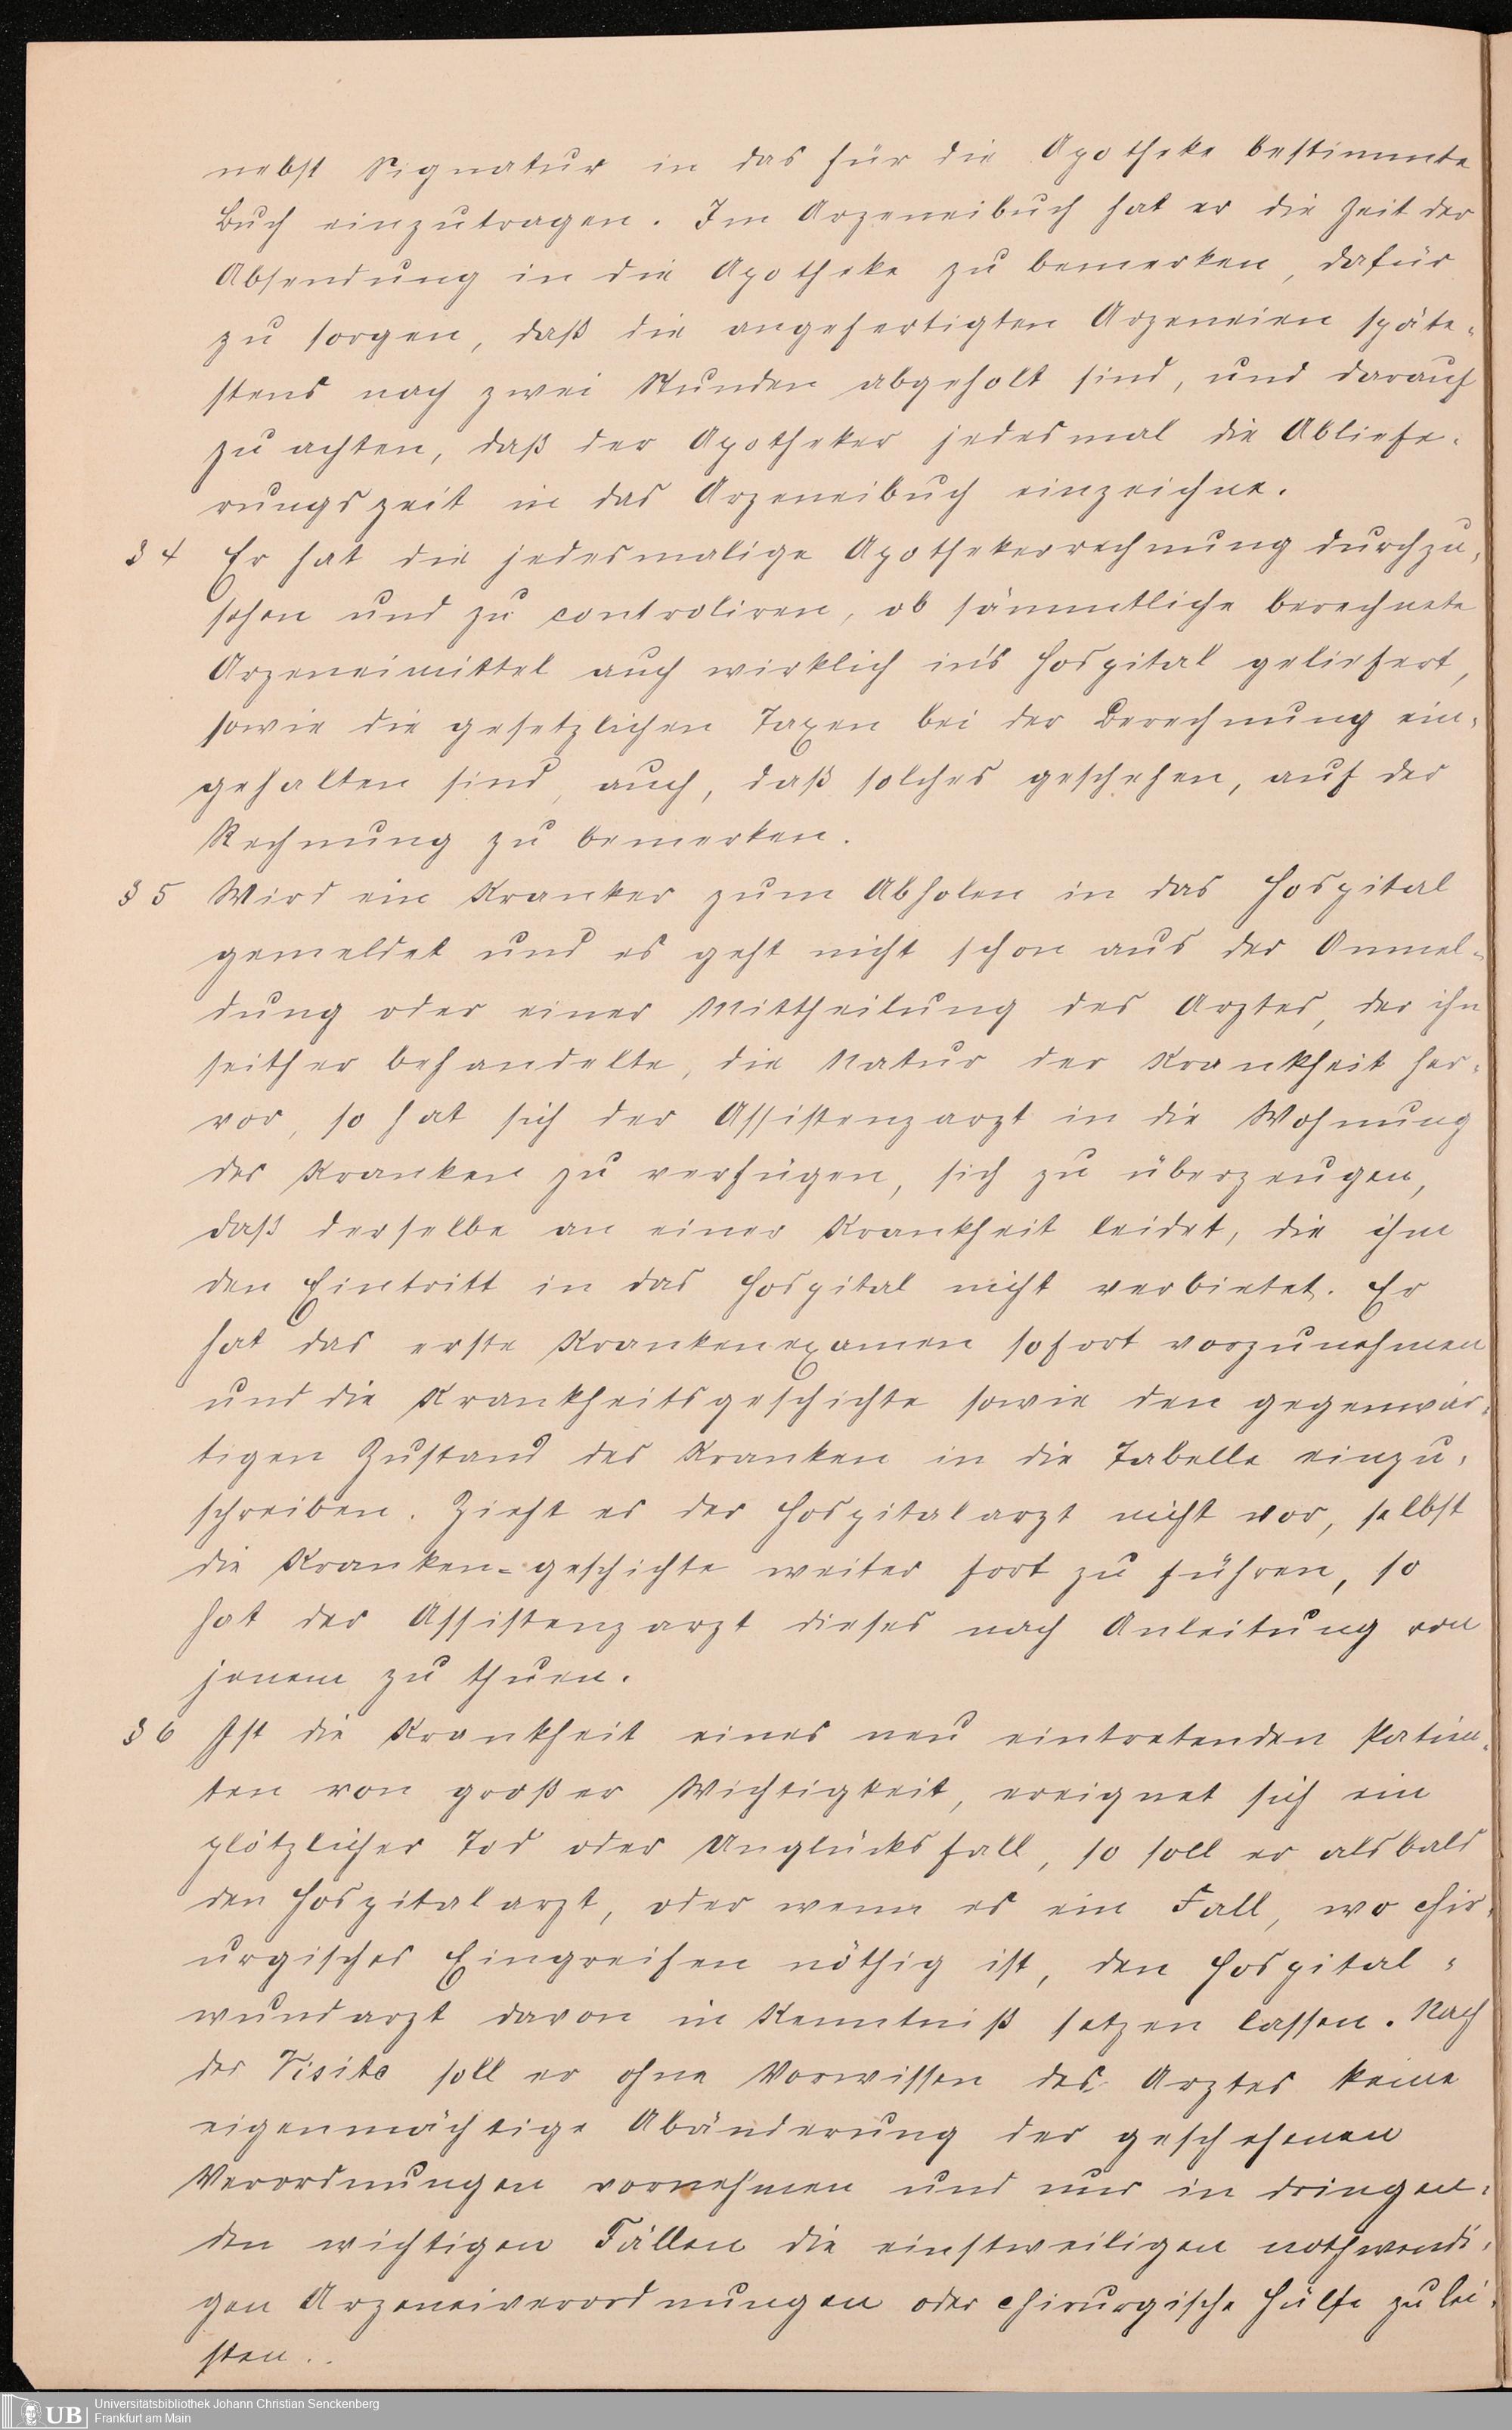 nebst Signatur in das für die Apotheke bestimmte
Buch einzutragen. Im Arzeneibuch hat er die Zeit der
Absendung in die Apotheke zu bemerken, dafür
zu sorgen, daß die angefertigten Arzeneien späte-
stens nach zwei Stunden abgeholt sind, und darauf
zu achten, daß der Apotheker jedesmal die Abliefe-
rungszeit in das Arzeneibuch einzeichne.
§ 4 Er hat die jedesmalige Apothekerrechnung durchzu-
sehen und zu controliren, ob sämmtliche berechnete
Arzeneimittel auch wirklich in's Hospital geliefert,
sowie die gesetzlichen Taxen bei der Berechnung ein-
gehalten sind, auch, daß solches geschehen, auf der
Rechnung zu bemerken.
§ 5 Wird ein Kranker zum Abholen in das Hospital
gemeldet und es geht nicht schon aus der Anmel-
dung oder einer Mittheilung des Arztes, der ihn
seither behandelte, die Natur der Krankheit her-
vor, so hat sich der Assistenzarzt in die Wohnung
des Kranken zu verfügen, sich zu überzeugen,
daß derselbe an einer Krankheit leidet, die ihm
den Eintritt in das Hospital nicht verbietet. Er
hat das erste Krankenexamen sofort vorzunehmen
und die Krankheitsgeschichte sowie den gegenwär-
tigen Zustand des Kranken in die Tabelle einzu-
schreiben. Zieht es der Hospitalarzt nicht vor, selbst
die Kranken-geschichte weiter fort zu führen, so
hat der Assistenzarzt dieses nach Anleitung von
jenem zu thuen.
§ 6 Ist die Krankheit eines neu eintretenden Patien-
ten von großer Wichtigkeit, ereignet sich ein
plötzlicher Tod oder Unglücksfall, so soll er alsbald
den Hospitalarzt, oder wenn es ein Fall, wo chir-
urgisches Eingreifen nöthig ist, den Hospital-
wundarzt davon in Kenntniß setzen lassen. Nach
der Visite soll er ohne Vorwissen des Arztes keine
eigenmächtige Abänderung der geschehenen
Verordnungen vornehmen und nur in dringen-
den wichtigen Fällen die einstweiligen nothwendi-
gen Arzeneiverordnungen oder chirurgische Hülfe zu lei-
sten..
UB
Universitätsbibliothek Johann Christian Senckenberg
Frankfurt am Main